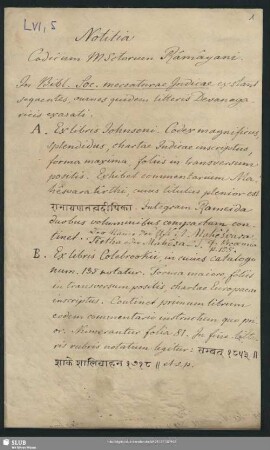 LVI, 5
Notitia
Codicum MSctorum Râmâyani.
In Bibl. Soc. mercaturae Indicae exstant
sequentes, omnes quidem litteris Devanaga-
ricis exarati.
A. Ex libris Johnsoni. Codex magnificus
splendidus, chartae Indicae inscriptus,
forma maxima, foliis in transversum
positis. Exhibet commentarium
cuius titulus plenior est
रामायणतत्त्वदीपिका. Integrum Rameida
duobus voluminibus compactum con-
tinet.
B. Ex libris Colebrookii, in cuius catalogo
num. 135 notatur. Forma maiore, foliis
in transversum positis, chartae Europaeae
inscriptus. Continet primum librum
eodem commentario instructum quo pri-
or. Numerantur folia 87. In fine libr
ris rubris notatum legitur: सम्वत १८५३ ॥
शाके शालिवाहन १७१८ ॥